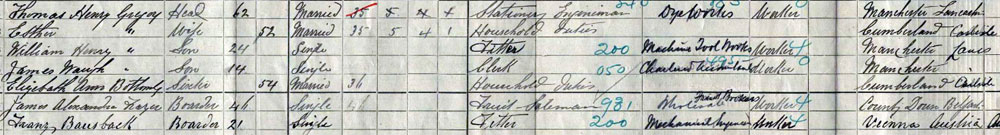 Thomas Henry Gregory Head 62 Married 35 5 4 1 Stationary Engineman Dye Works Worker Manchester Lancash
Esther " Wife 52 Married 35 5 4 1 Household Duties Cumberland Carlisle
William Henry " Son 24 Single Fitter 200 Machine Tool Works Worker 4 Manchester Lancs
James Waugh " Son 14 Single Clerk 050 Chartered Accountant Worker 0 Manchester "
Elizabeth Anns Bothomly Sister 54 Married 36 Household Duties Cumberland Carlisle
James Alexander Frazer Boarder 46 Single Fruit Salesman 931 Wholesale Fruit Brokers Worker 4 County Down Belfast
Franz Bausback Boarder 21 Single Fitter 200 Mechanical Engineer Worker 4 Vienna Austria